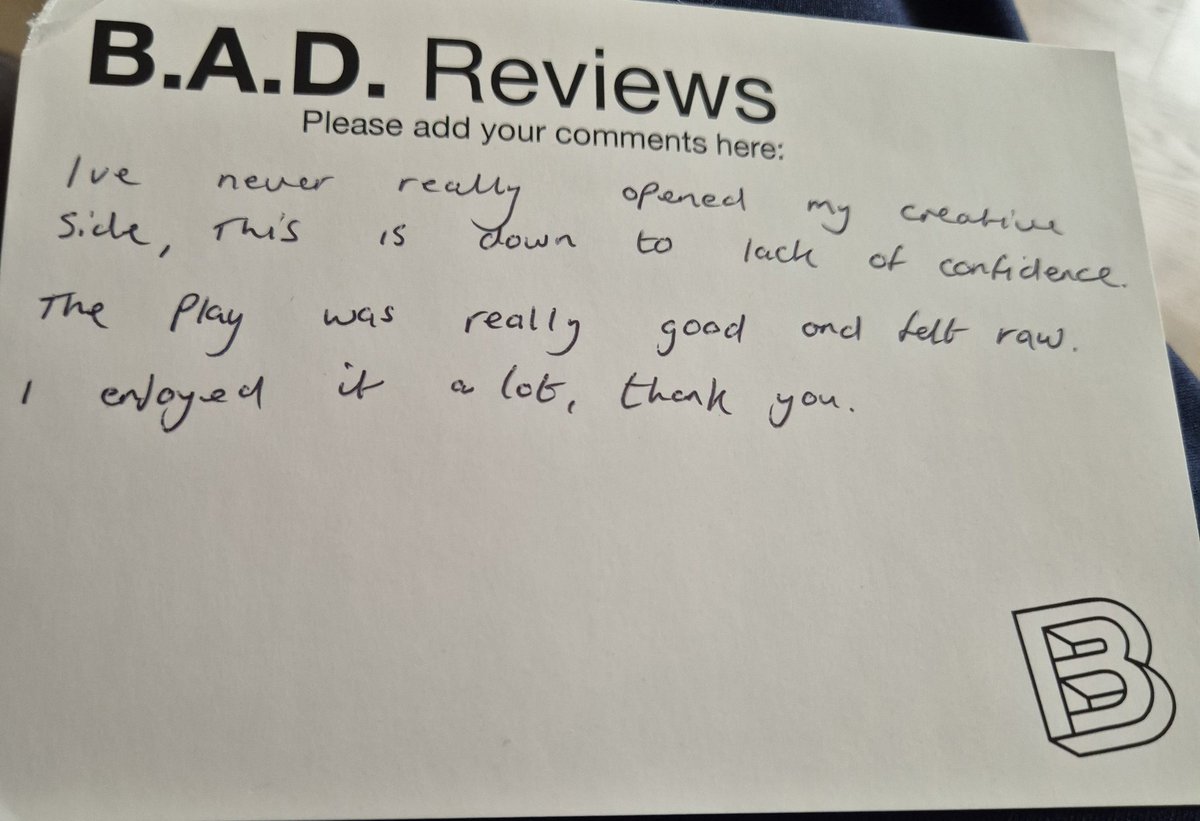 B.A.D. Reviews
Please add your comments here:
Ive never really opened my creative
side, This is down to lack of confidence.
The Play was really good and felt raw.
I enjoyed it a lot, thank you.
B